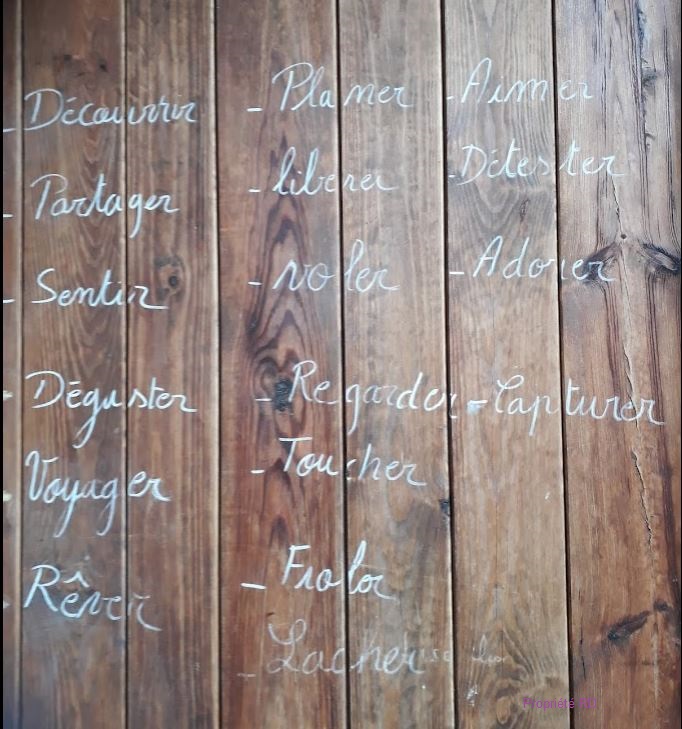 - Découvrir
- Partager
- Sentir
- Déguster
- Voyager
- Rêver
- Planer
- libérer
- voler
- Regarder
- Toucher
- Froler
- Lacher
- Aimer
- Détester
- Adorer
- Capturer
Propriété